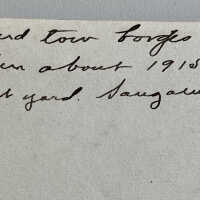 rd tow barges
en about 1915
t yard. Saugatu